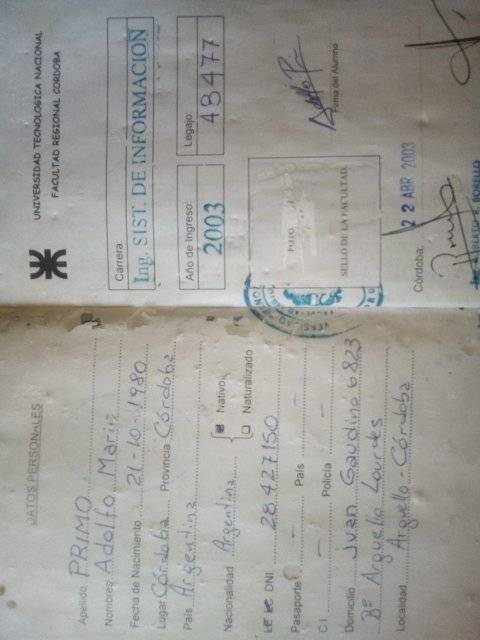 DATOS PERSONALES
Apellido PRIMO
Nombres Adolfo Mario
Fecha de Nacimiento 21-10-1980
Lugar Córdoba Provincia Córdoba
País Argentina
Nacionalidad Argentina Nativo
Naturalizado
LE LC DNI 28427150
Pasaporte - País -
CI - Policía -
Domicilio Juan Gaudino 6823
Bº Arguello Lourdes
Localidad Arguello - Córdoba
UNIVERSIDAD TECNOLOGICA NACIONAL
FACULTAD REGIONAL CORDOBA
Carrera:
Ing. SIST. DE INFORMACION
Año de Ingreso: Legajo:
2003 48477
FOTO
SELLO DE LA FACULTAD
Firma del Alumno
Córdoba, 22 ABR 2003